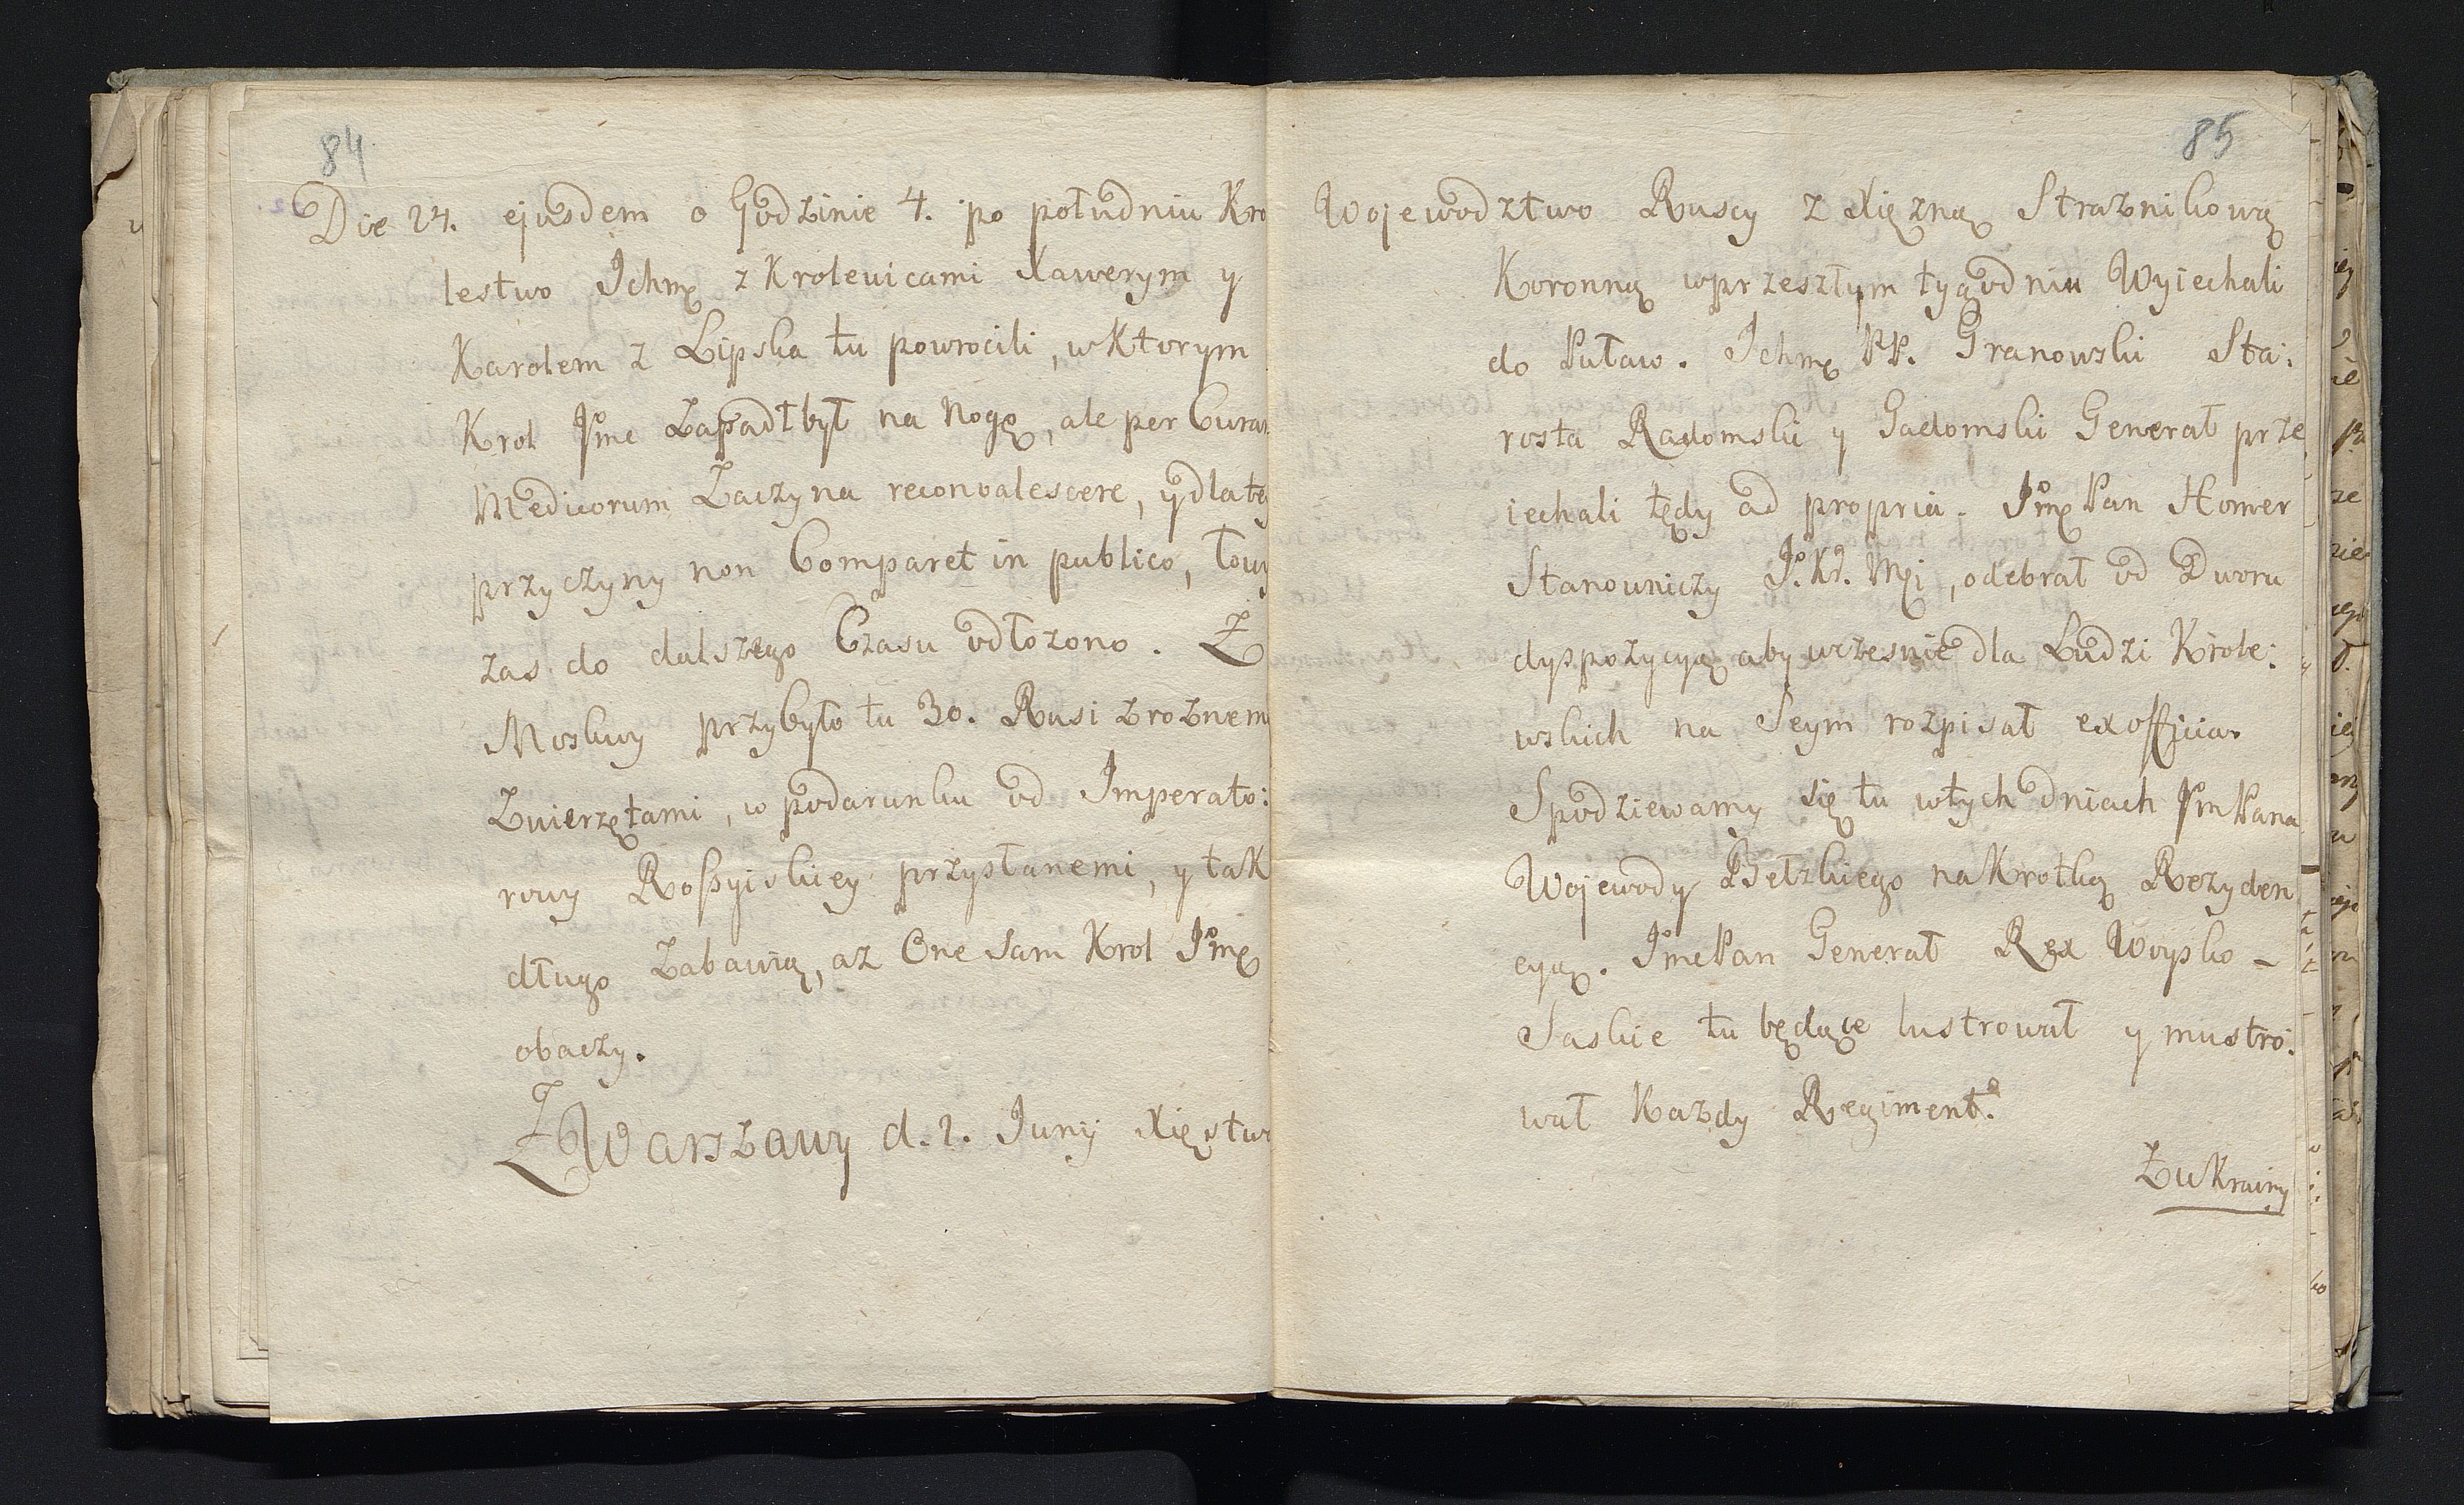 84
Die 24. ejusdem o Godzinie 4. po południu Kro
lestwo Ichmę z Krolewicami Xawerym y
Karolem z Lipska tu powrocili, w Ktorym
Krol Jmc Zapadł był na Nogę, ale per Curam
Medicorum Zaczyna reconvalescere, y dla tey
przyczyny non Comparet in publico, Łowy
zas do dalszego Czasu odłozono. Z
Moskwy przybyło tu 30. Rusi z roznemi
Zwierzętami, w podarunku od Imperato:
rowy Rossyiskiey przysłanemi, y tak
długo Zabawią, az One Sam Krol Jmę
obaczy.
Z Warszawy d. 2. Junij Xięstwo
85
Wojewodztwo Ruscy z Xięzną Straznikową
Koronną w przeszłym tygodniu Wyiechali
do Puław. Ichmę PP. Granowski Sta:
rosta Radomski y Gadomski Generał prze
iechali tędy ad propria. Jmę Pan Homer
Stanowniczy J. Kr. Mci, odebrał od Dworu
dyspozycyą aby wczesnie dla Ludzi Krole:
wskich na Seym rozpisał ex officia.
Spodziewamy się tu w tych dniach Jm Pana
Wojewody Bełzkiego na Krotką Rezyden
cyą. Jmc Pan Generał Rex Woysko -
Saskie tu będące lustrował y mustro:
wał Kazdy Regiment.
Z Ukrainy